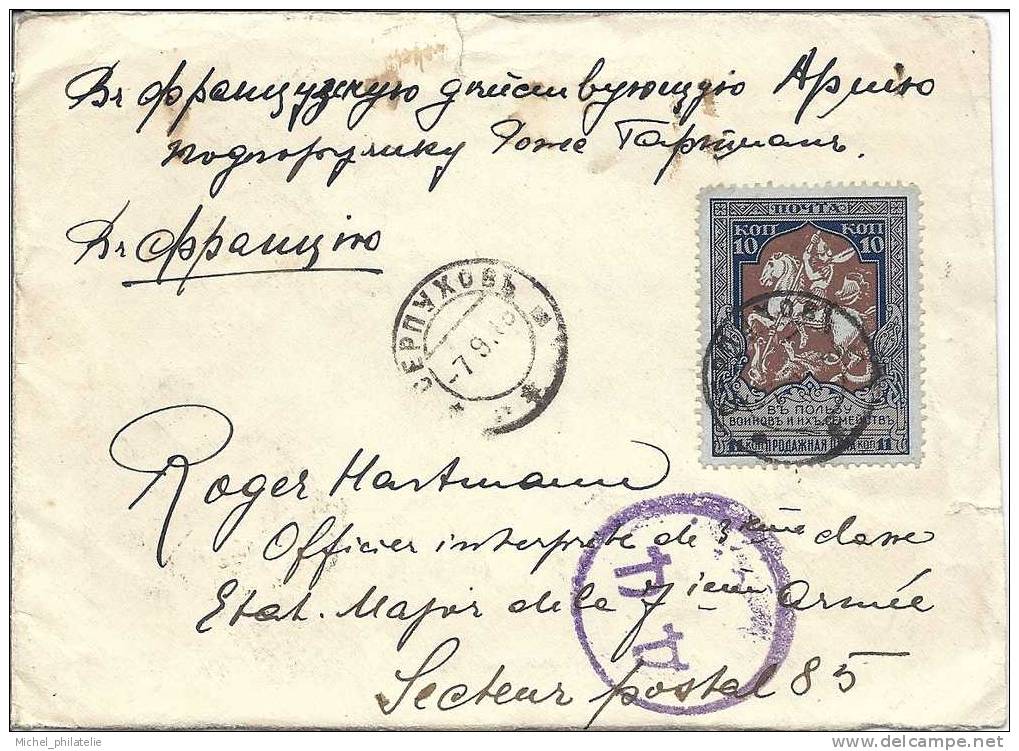 Въ французскую дѣйствующую Армію
подпоручику Роже Гартманъ.
Въ Францію
ПОЧТА
КОП КОП
10 10
ВЪ ПОЛЬЗУ
ВОИНОВЪ И ИХЪ СЕМЕЙСТВЪ
11 КОП ПРОДАЖНАЯ ЦѢНА КОП 11
СЕРПУХОВЪ М
-7.9.
Roger Hartmann
Officier interprète de 3ième classe
Etat. Major de la 7ième Armée
Secteur postal 85
Michel_philatelie
delcampe.net